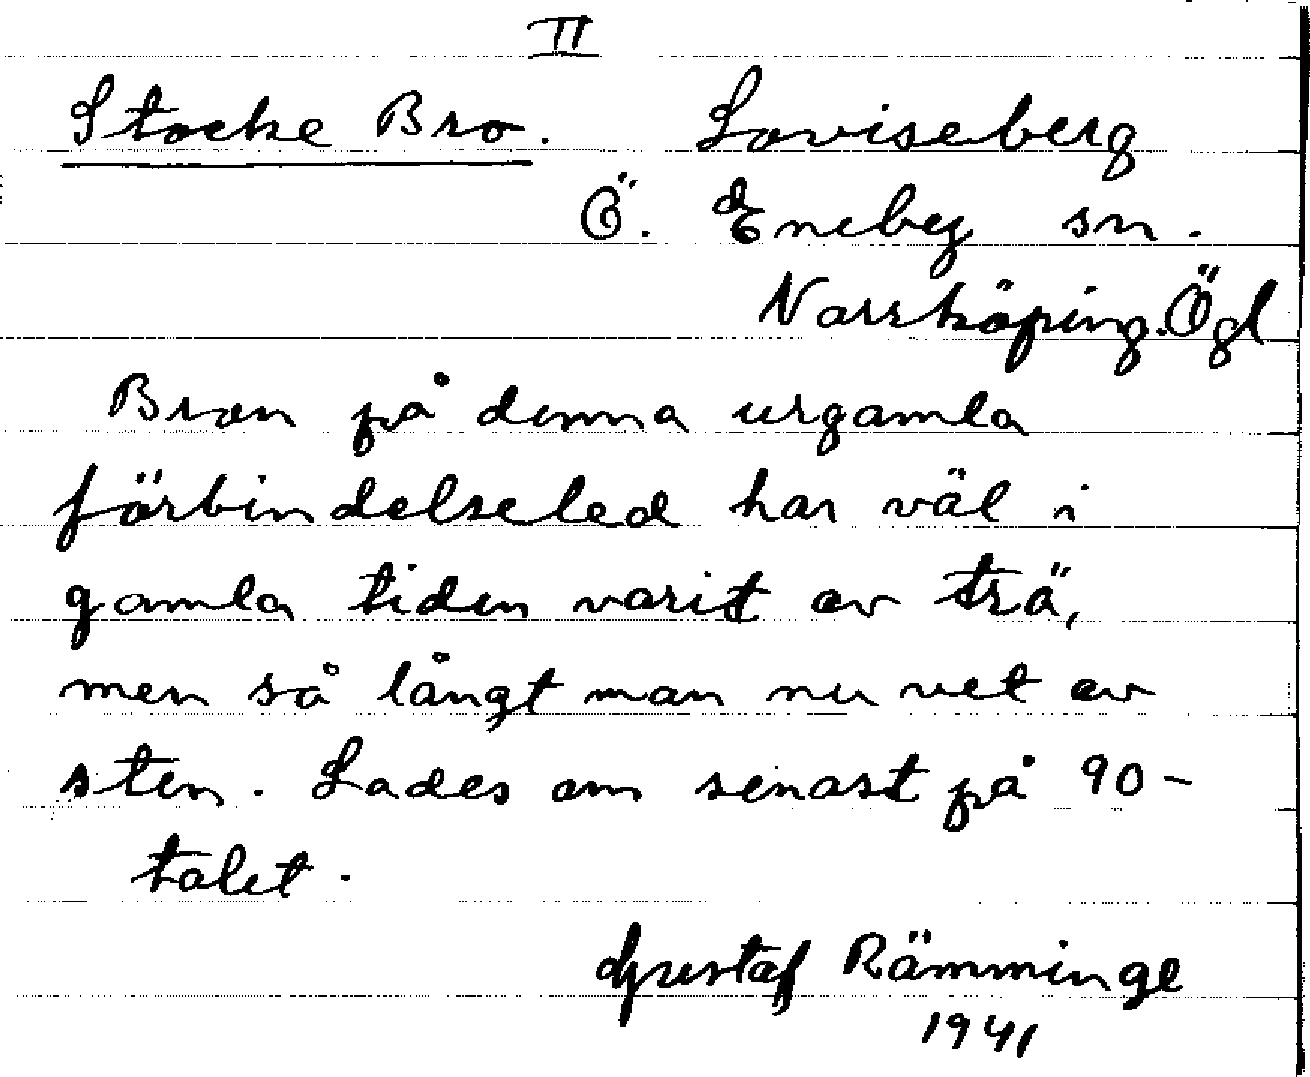 II
Stocke Bro. Loviseberg
Ö. Eneby sn.
Norrköping. Ögl
Bron på denna urgamla
förbindelseled har väl i
gamla tiden varit av trä,
men så långt man nu vet av
sten. Lades om senast på 90-
talet.
Gustaf Rämminge
1941